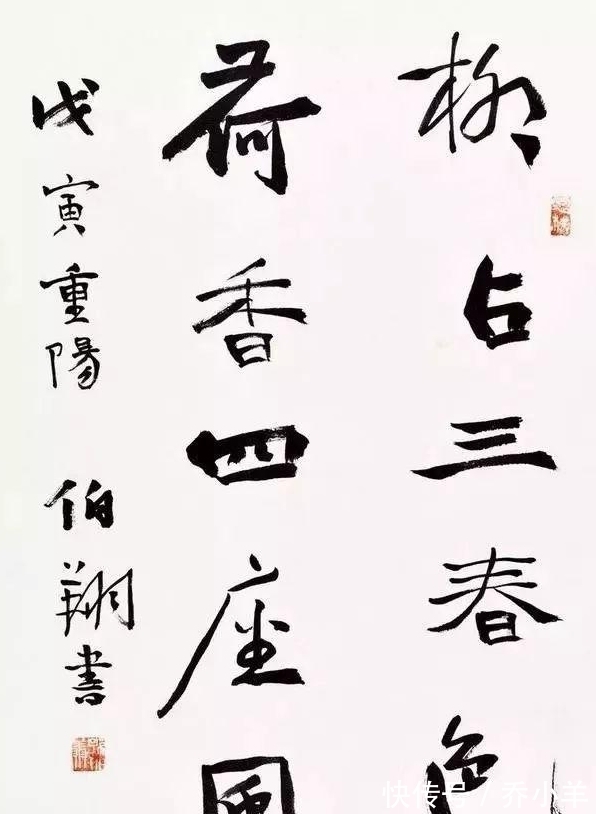 柳占三春色
荷香四座風
戊寅重陽 伯翔書
快传号／乔小羊